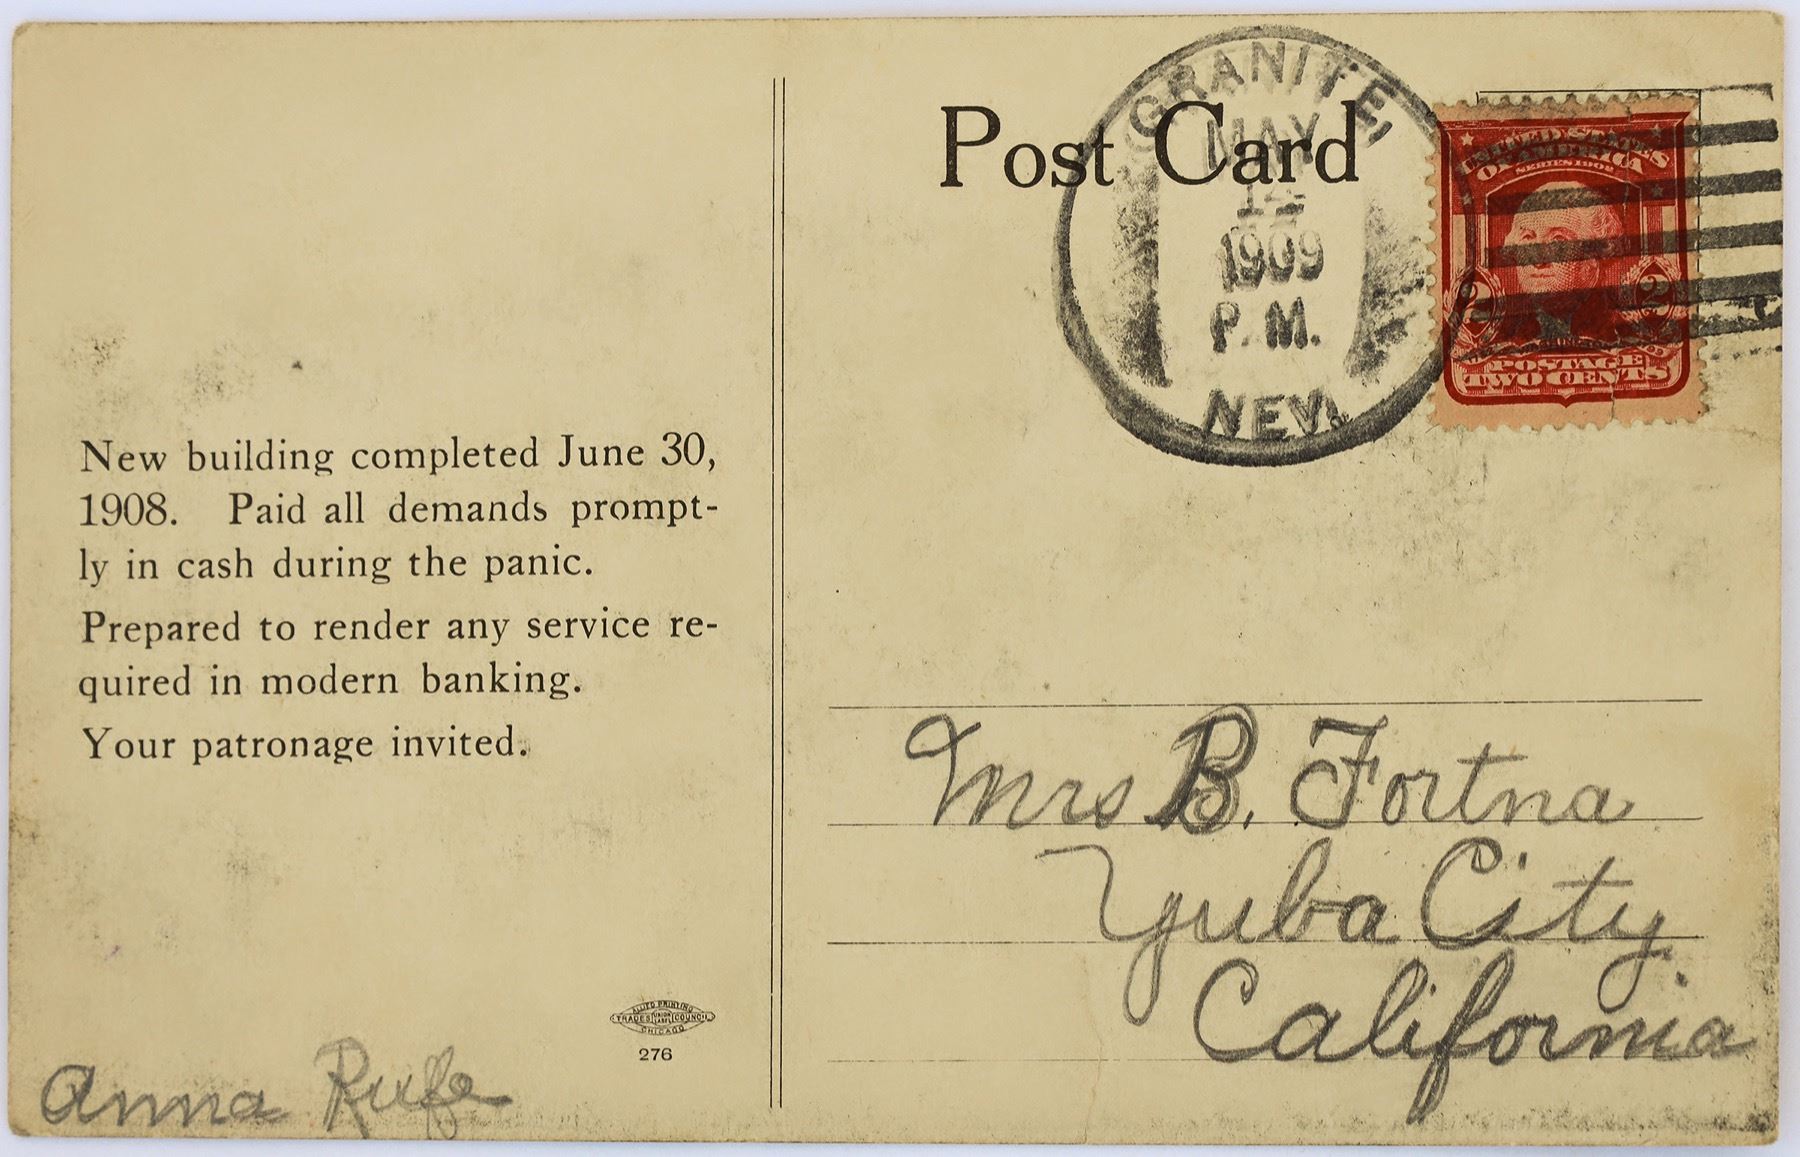 New building completed June 30,
1908. Paid all demands prompt-
ly in cash during the panic.
Prepared to render any service re-
quired in modern banking.
Your patronage invited.
ALLIED PRINTING
TRADES UNION LABEL COUNCIL
CHICAGO
276
Anna Rufe
Post Card
GRANITE,
MAY
14
1909
P.M.
NEV.
UNITED STATES
OF AMERICA
SERIES 1902
2 2
POSTAGE
TWO CENTS
Mrs B. Fortna
Yuba City
California